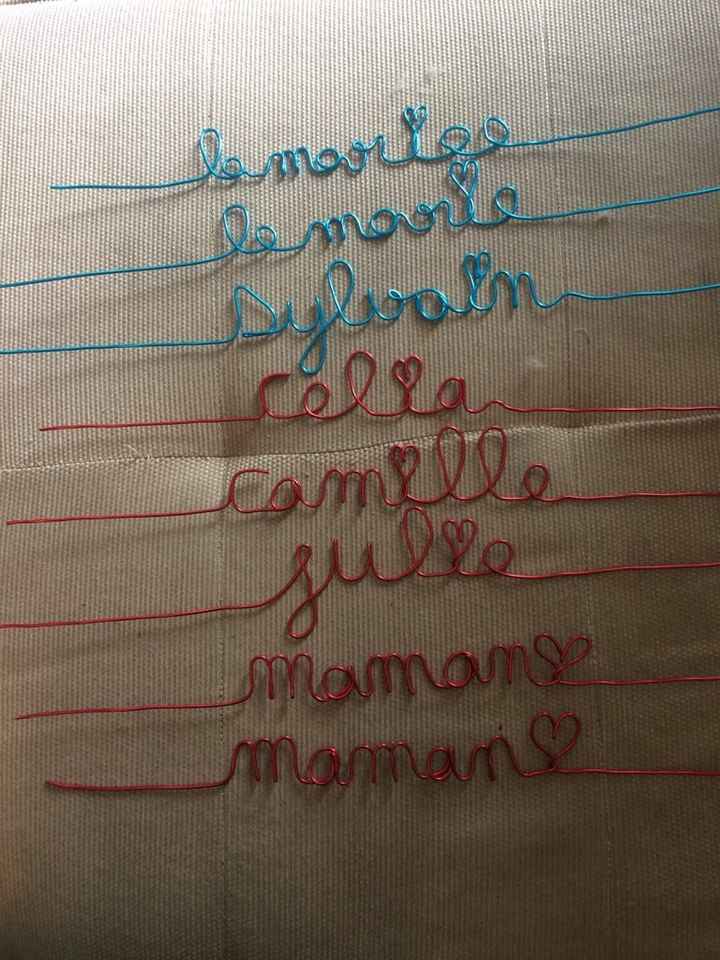 la mariee
le marie
sylvain
celia
camille
julie
maman
maman